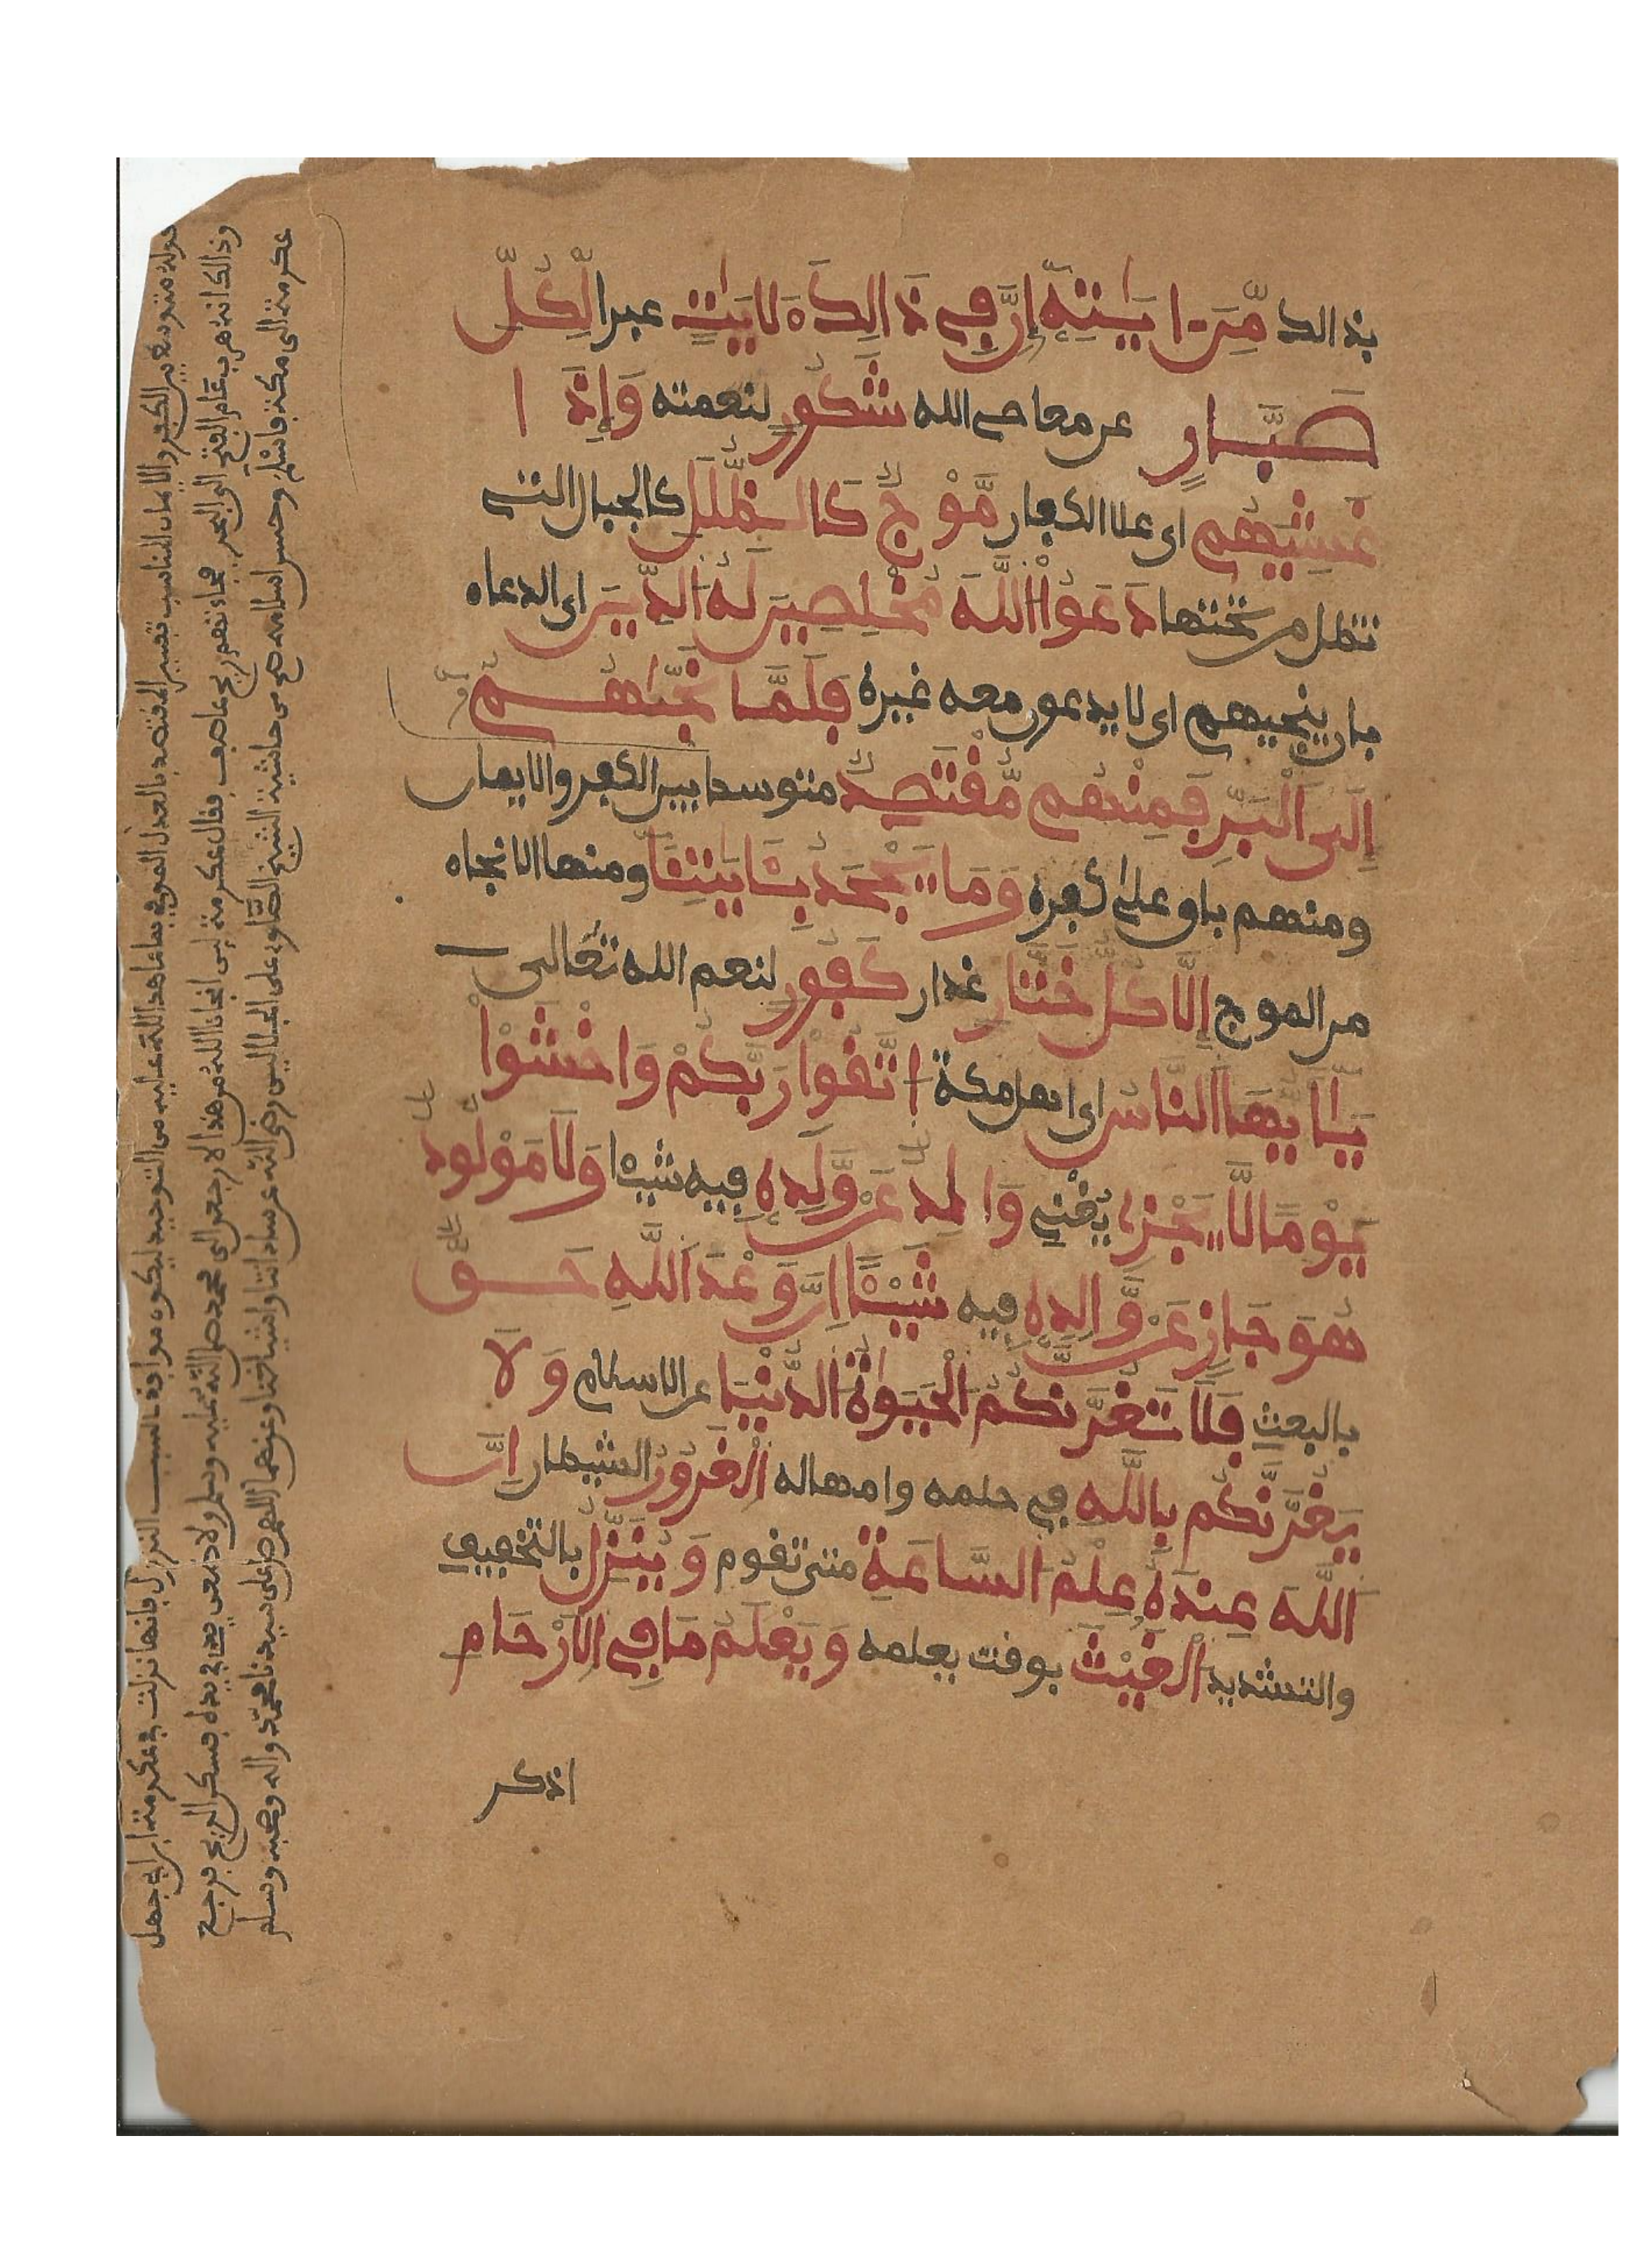 بذالك مِّنَ ايَٰتِهِۦٓ إِنَّ فِي ذَالِكَ لَأيَٰتٍ عبرا لِّكُلِّ
صَبَّارٍ عن معاصي الله شَكُورٍ لنعمته وَإِذَا
غَشِيَهُم اى علا الكفار مَّوْجٌ كَالظُّلَلِ كالجبال التي
تظل من تحتها دَعَوُا اللَّهَ مُخْلِصِينَ لَهُ الدِّينَ اى الدعاء
بان ينجيهم اى لا يدعون معه غيره فَلَمَّا نَجَّىٰهُمْ
إِلَى الْبَرِّ فَمِنْهُم مُّقْتَصِدٌ متوسط بين الكفر والايمان
ومنهم باق على كفره وَمَا يَجْحَدُ بِـَٔايَٰتِنَا ومنها الانجاء
من الموج إِلَّا كُلُّ خَتَّارٍ غدار كَفُورٍ لنعم الله تعالى
يَٰأَيُّهَا النَّاسُ اى اهل مكة اتَّقُوا رَبَّكُمْ وَاخْشَوْا
يَوْمًا لَّا يَجْزِي يغني وَالِدٌ عَنْ وَّلَدِهِ فيه شيـٔا وَلَا مَوْلُودٌ
هُوَ جَازٍ عَنْ وَّالِدِهِ فيه شَيْـًٔا إِنَّ وَعْدَ اللَّهِ حَقٌّ
بالبعث فَلَا تَغُرَّنَّكُمُ الْحَيَوٰةُ الدُّنْيَا عن الاسلام وَلَا
يَغُرَّنَّكُم بِاللَّهِ في حلمه وامهاله الْغَرُورُ الشيطان إِنَّ
اللَّهَ عِندَهُ عِلْمُ السَّاعَةِ متى تقوم وَيُنَزِّلُ بالتخفيف
والتشديد الْغَيْثَ بوقت يعلمه وَيَعْلَمُ مَا فِي الْأَرْحَامِ
اذكر
قوله متوسط بين الكفر والايمان المناسب تفسير المقتصد بالعدل الموفي بما عاهد الله عليه من التوحيد ليكون موافقا لسبب النزول فانها نزلت في عكرمة ابن ابي جهل
وذالك انه هرب عام الفتح الى البحر فجاءتهم ريح عاصف فقال عكرمة لئن انجانا الله من هذا لارجعن الى محمد صلى الله عليه وسلم ولاضعن يدي في يده فسكن الريح فرجع
عكرمة الى مكة فاسلم وحسن اسلامه من حاشية الشيخ الصاوي على الجلالين رضى الله عن ساداتنا واشياخنا وعنهما اللهم صل على سيدنا محمد واله وصحبه وسلم